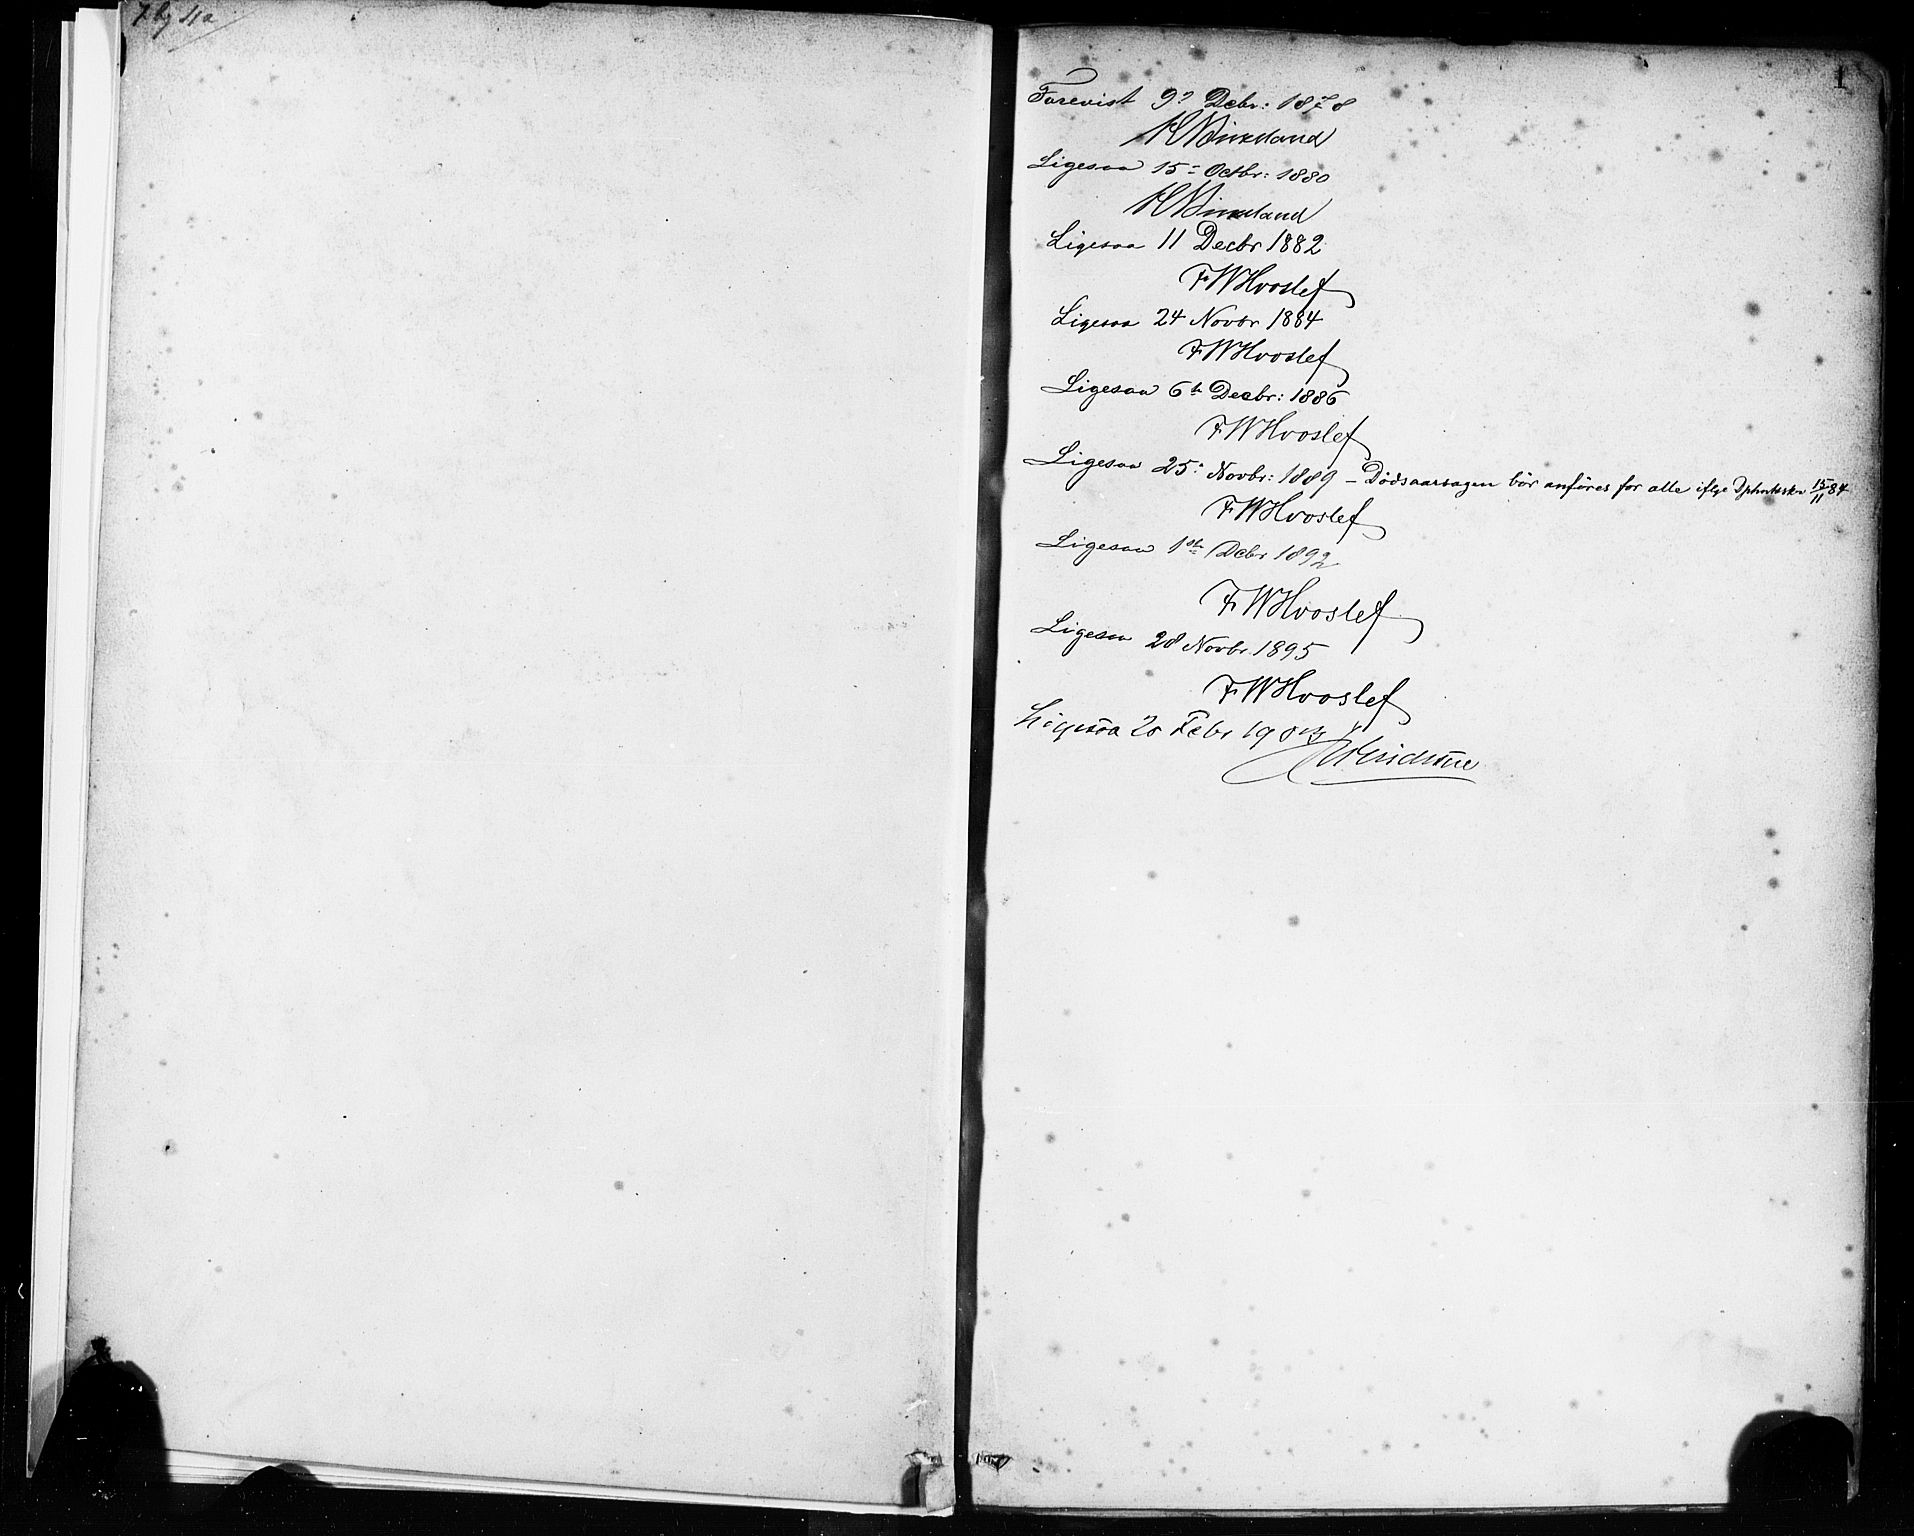 1
Forevist 9de Decbr: 1878
Ligesaa 15de Octbr: 1880
Ligesaa 11 Decbr 1882
FWHvoslef
Ligesaa 24 Novbr 1884
FWHvoslef
Ligesaa 6te Decbr: 1886
FWHvoslef
Ligesaa 25: Novbr: 1889 – Dödsaarsagen bör anföres for alle iflge Dptmtsskr 15/11 84
FWHvoslef
Ligesaa 1ste Decbr 1892
FWHvoslef
Ligesaa 28 Novbr. 1895
FWHvoslef
Ligesaa Febr